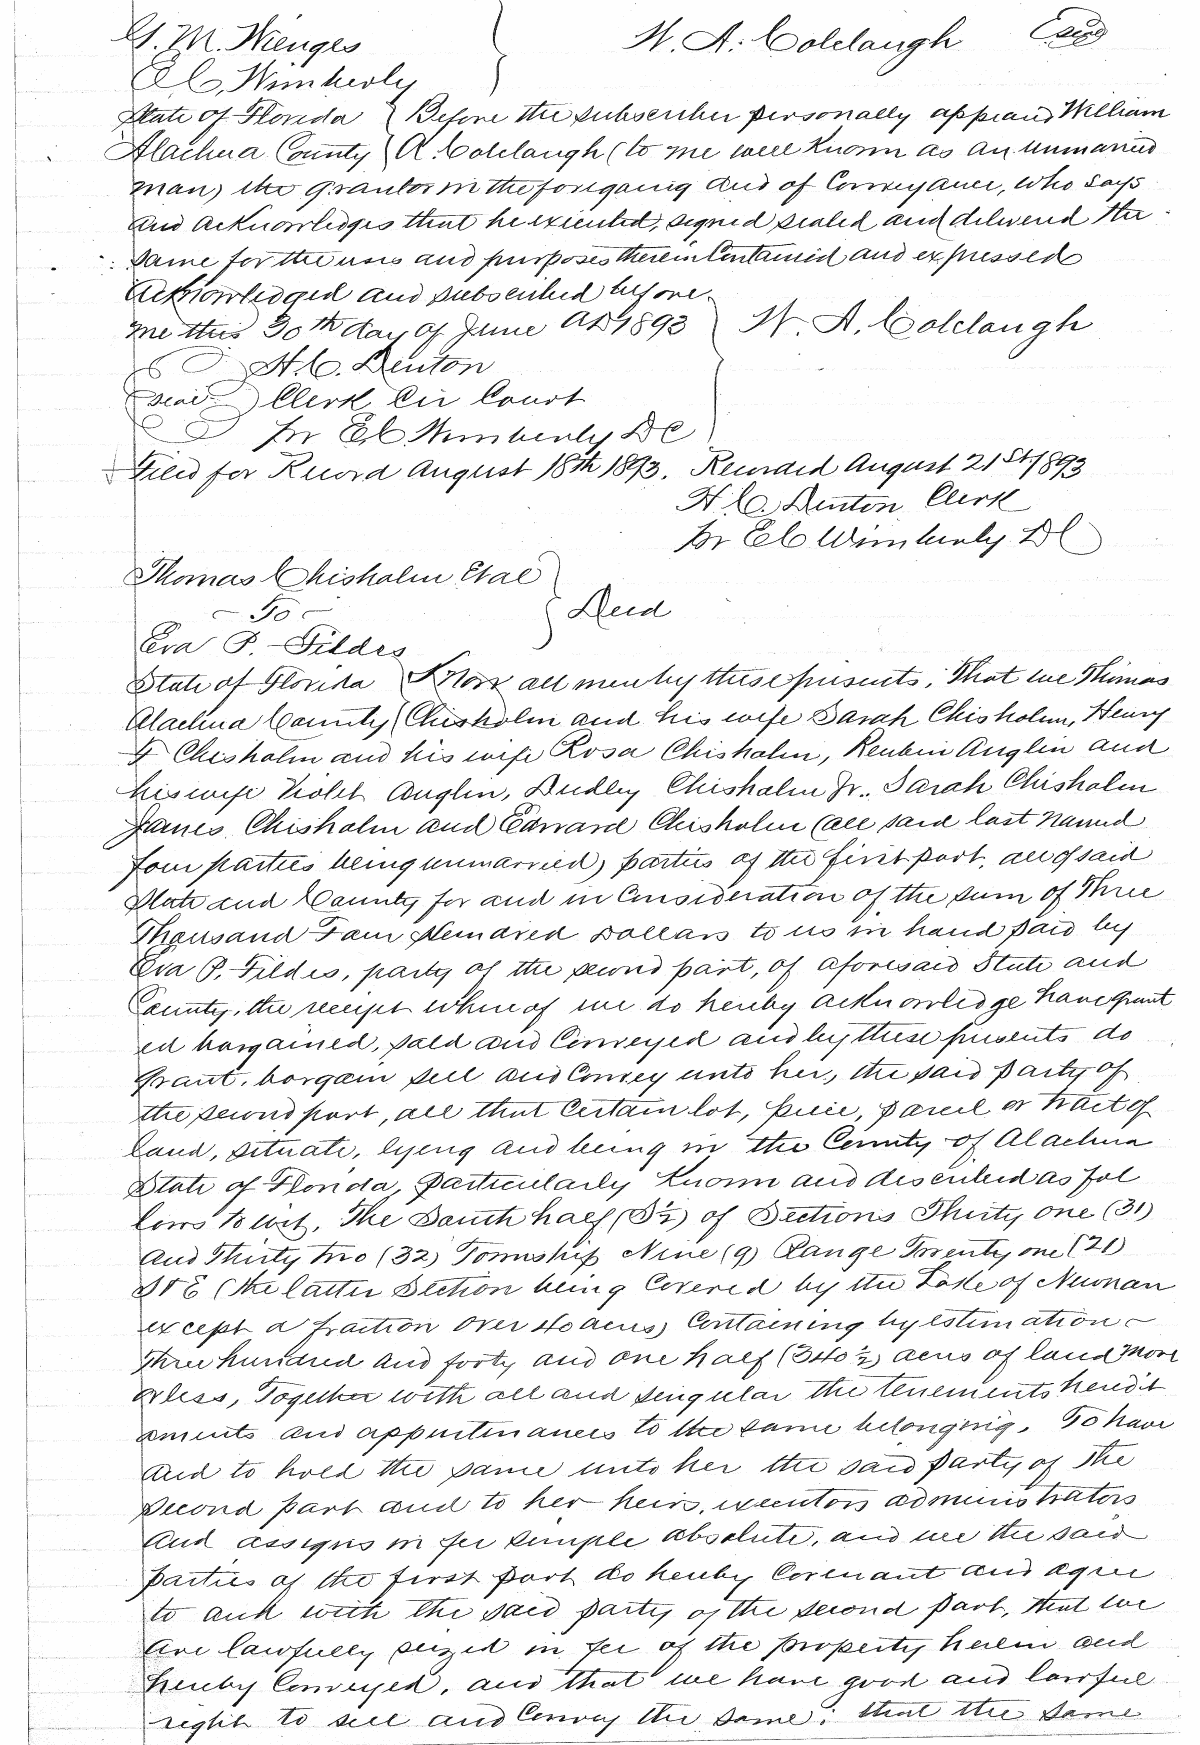 G. M. Wienges } W. A. Colclough (Seal)
E. C. Wimberly
State of Florida { Before the subscriber personally appeard William
Alachua County { A. Colclough (to me well Known as an unmarried
man) the grantor in the foregoing deed of Conveyance, who says
and acknowledges that he executed, signed sealed and delivered the
same for the uses and purposes therein Contained and expressed
Acknowledged and subscribed before
me this 30th day of June AD 1893 } W. A. Colclough
H. C. Denton
(seal) Clerk Cir Court
pr E C Wimberly D C
Filed for Record August 18th 1893. Recorded August 21st 1893
H. C. Denton Clerk
pr E C Wimberly D C
Thomas Chisholm Etal
- To - } Deed
Eva P. Fildes
State of Florida { Know all men by these presents, That we Thomas
Alachua County { Chisholm and his wife Sarah Chisholm, Henry
F Chisholm and his wife Rosa Chisholm, Reubin Anglin and
his wife Violet Anglin, Dudley Chisholm Jr., Sarah Chisholm
James Chisholm and Edward Chisholm (all said last named
four parties being unmarried) parties of the first part, all of said
State and County for and in Consideration of the sum of Three
Thousand Four Hundred Dollars to us in hand paid by
Eva P. Fildes, party of the second part, of aforesaid State and
County, the receipt whereof we do hereby acknowledge have grant
ed bargained, sold and Conveyed and by these presents do
grant, bargain sell and Convey unto her, the said party of
the second part, all that Certain lot, piece, parcel or tract of
land, situate, lyeng and being in the County of Alachua
State of Florida, particularly Known and described as fol
lows to wit, The South half (S½) of Sections Thirty one (31)
and Thirty two (32) Township Nine (9) Range Twenty one (21)
S & E (the latter Section being Covered by the Lake of Newnan
except a fraction over 40 acres) Containing by estimation -
Three hundred and forty and one half (340½) acres of land more
orless, Together with all and singular the tenements heredit
aments and appurtinances to the same belonging. To have
and to hold the same unto her the said party of the
second part and to her heirs, executors administrators
and assigns in fee simple absolute, and we the said
parties of the first part do hereby Covenant and agree
to and with the said party of the second part, that we
are lawfully seized in fee of the property herein and
hereby Conveyed, and that we have good and lawful
right to sell and Convey the same; that the same